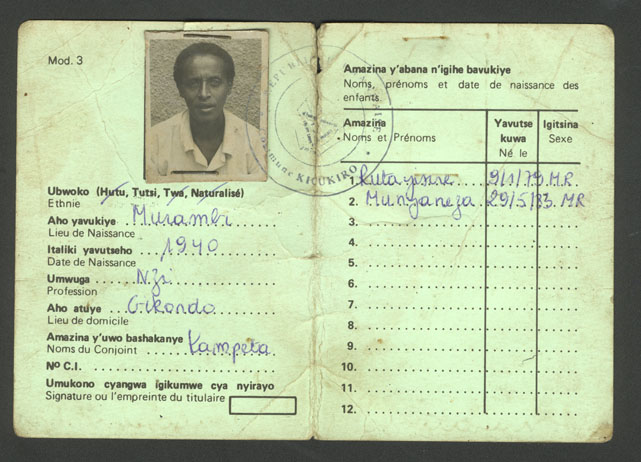 Mod. 3
REPUBLI
Commune KICUKIRO
Ubwoko (Hutu, Tutsi, Twa, Naturalisé)
Ethnie
Aho yavukiye Murambi
Lieu de Naissance
Italiki yavutseho 1940
Date de Naissance
Umwuga Nzi
Profession
Aho atuye Gikondo
Lieu de domicile
Amazina y'uwo bashakanye Kampeta
Noms du Conjoint
No C.I.
Umukono cyangwa igikumwe cya nyirayo
Signature ou l'empreinte du titulaire
Amazina y'abana n'igihe bavukiye
Noms, prénoms et date de naissance des
enfants.
Amazina Yavutse Igitsina
Noms et Prénoms kuwa Sexe
Né le
1. Rutayisire 9/1/79 MR
2. Munyaneza 29/5/83 MR
3.
4.
5.
6.
7.
8.
9.
10.
11.
12.